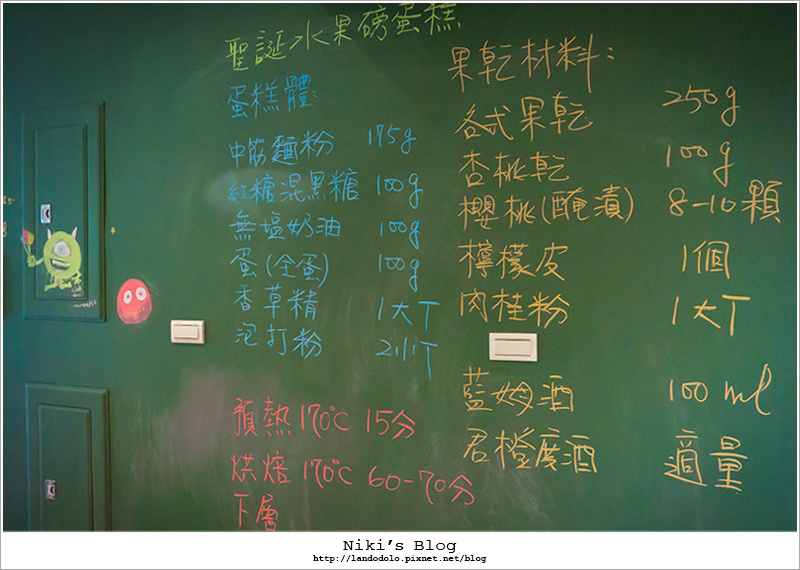 聖誕水果磅蛋糕
蛋糕體
中筋麵粉 175g
紅糖混黑糖 100g
無塩奶油 100g
蛋(全蛋) 100g
香草精 1大T
泡打粉 2小T
預熱170℃ 15分
烘焙170℃ 60-70分
下層
果乾材料:
各式果乾 250g
杏桃乾 100g
櫻桃(醃漬) 8-10顆
檸檬皮 1個
肉桂粉 1大T
藍姆酒 100ml
君橙度酒 適量
Niki's Blog
http://landodolo.pixnet.net/blog